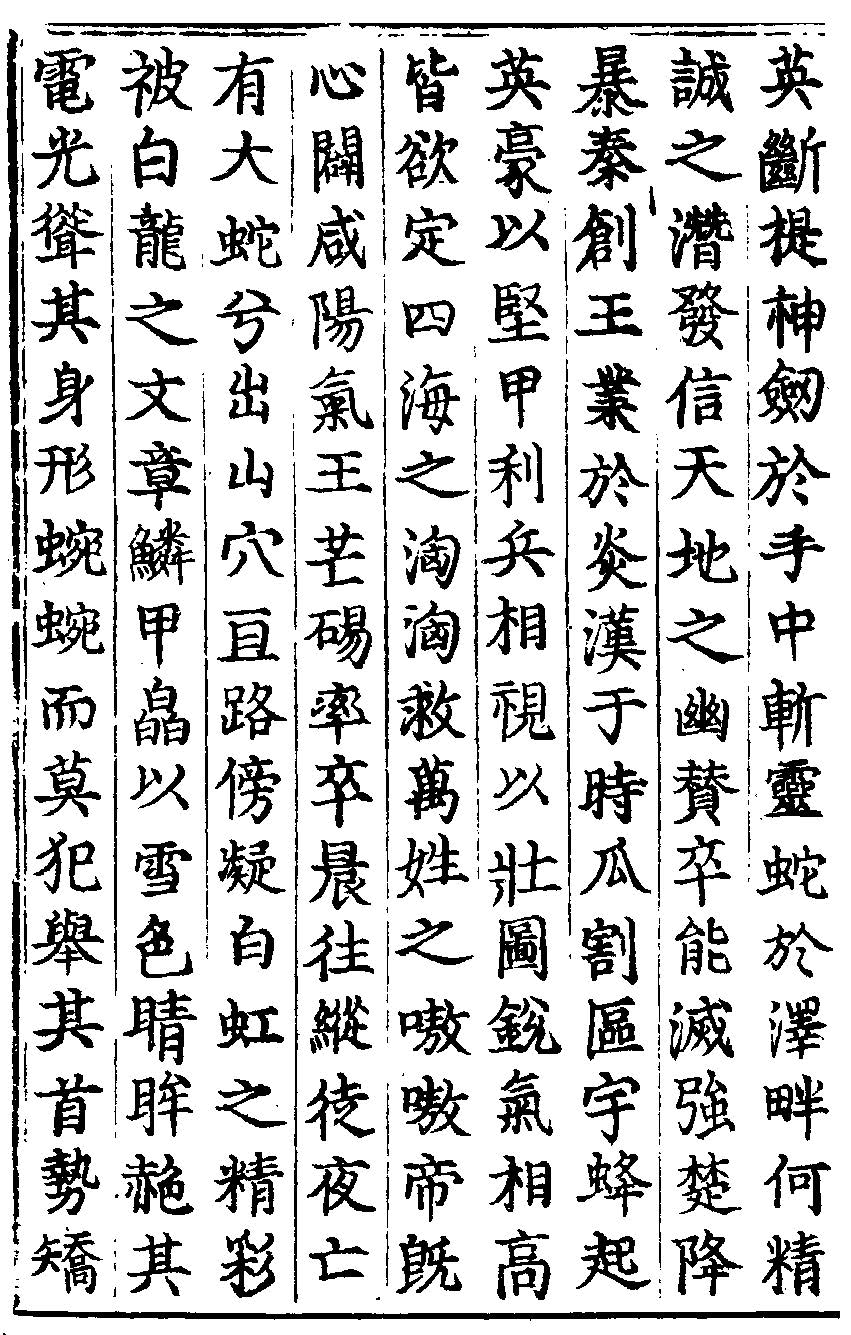 英斷提神劒於手中斬靈蛇於澤畔何精
誠之潛發信天地之幽賛卒能滅強楚降
暴秦創王業於炎漢于時瓜割區宇蜂起
英豪以堅甲利兵相視以壯圖銳氣相高
皆欲定四海之洶洶救萬姓之嗷嗷帝旣
心闢咸陽氣王芒碭率卒晨往縱徒夜亡
有大蛇兮出山穴亘路傍凝白虹之精彩
被白龍之文章鱗甲皛以雪色睛眸赩其
電光聳其身形蜿蜿而莫犯舉其首勢矯